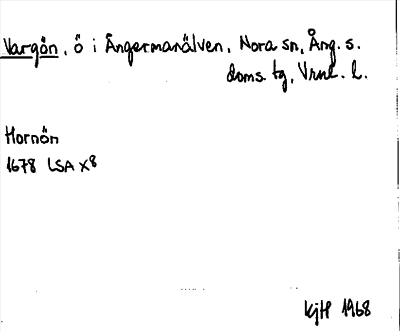 Vargön, ö i Ångermanälven, Nora sn, Ång. s.
doms. tg, Vrnl. l.
Hornön
1678 LSA X8
KjH 1968